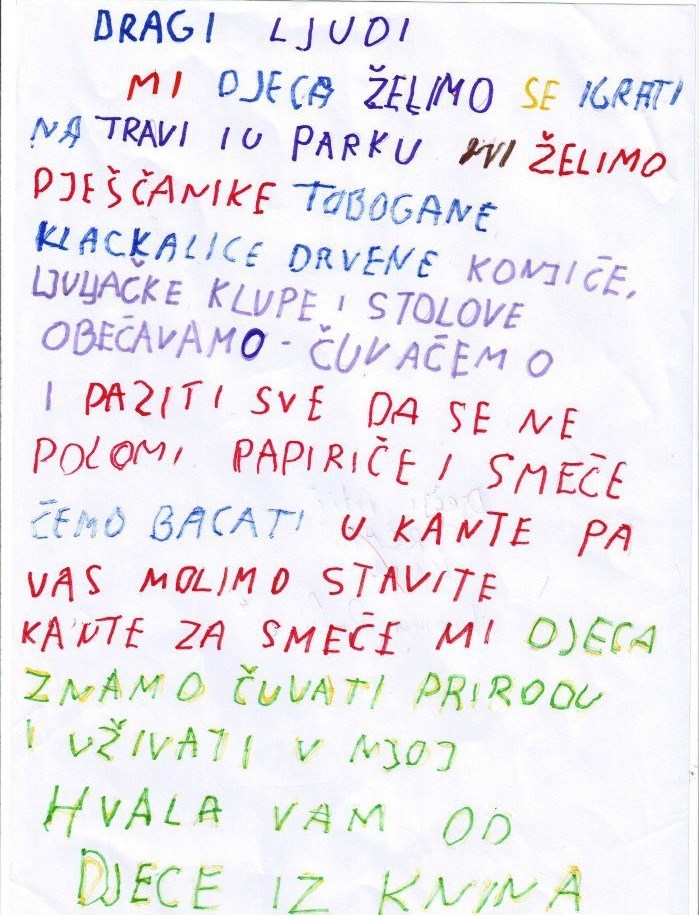 DRAGI LJUDI
MI DJECA ŽELIMO SE IGRATI
NA TRAVI I U PARKU MI ŽELIMO
PJEŠČANIKE TOBOGANE
KLACKALICE DRVENE KONJIČE,
LJULJAČKE KLUPE I STOLOVE
OBEČAVAMO - ČUVAČEMO
I PAZITI SVE DA SE NE
POLOMI PAPIRIČE I SMEČE
ČEMO BACATI U KANTE PA
VAS MOLIMO STAVITE
KANTE ZA SMEČE MI DJECA
ZNAMO ČUVATI PRIRODU
I UŽIVATI U NJOJ
HVALA VAM OD
DJECE IZ KNINA